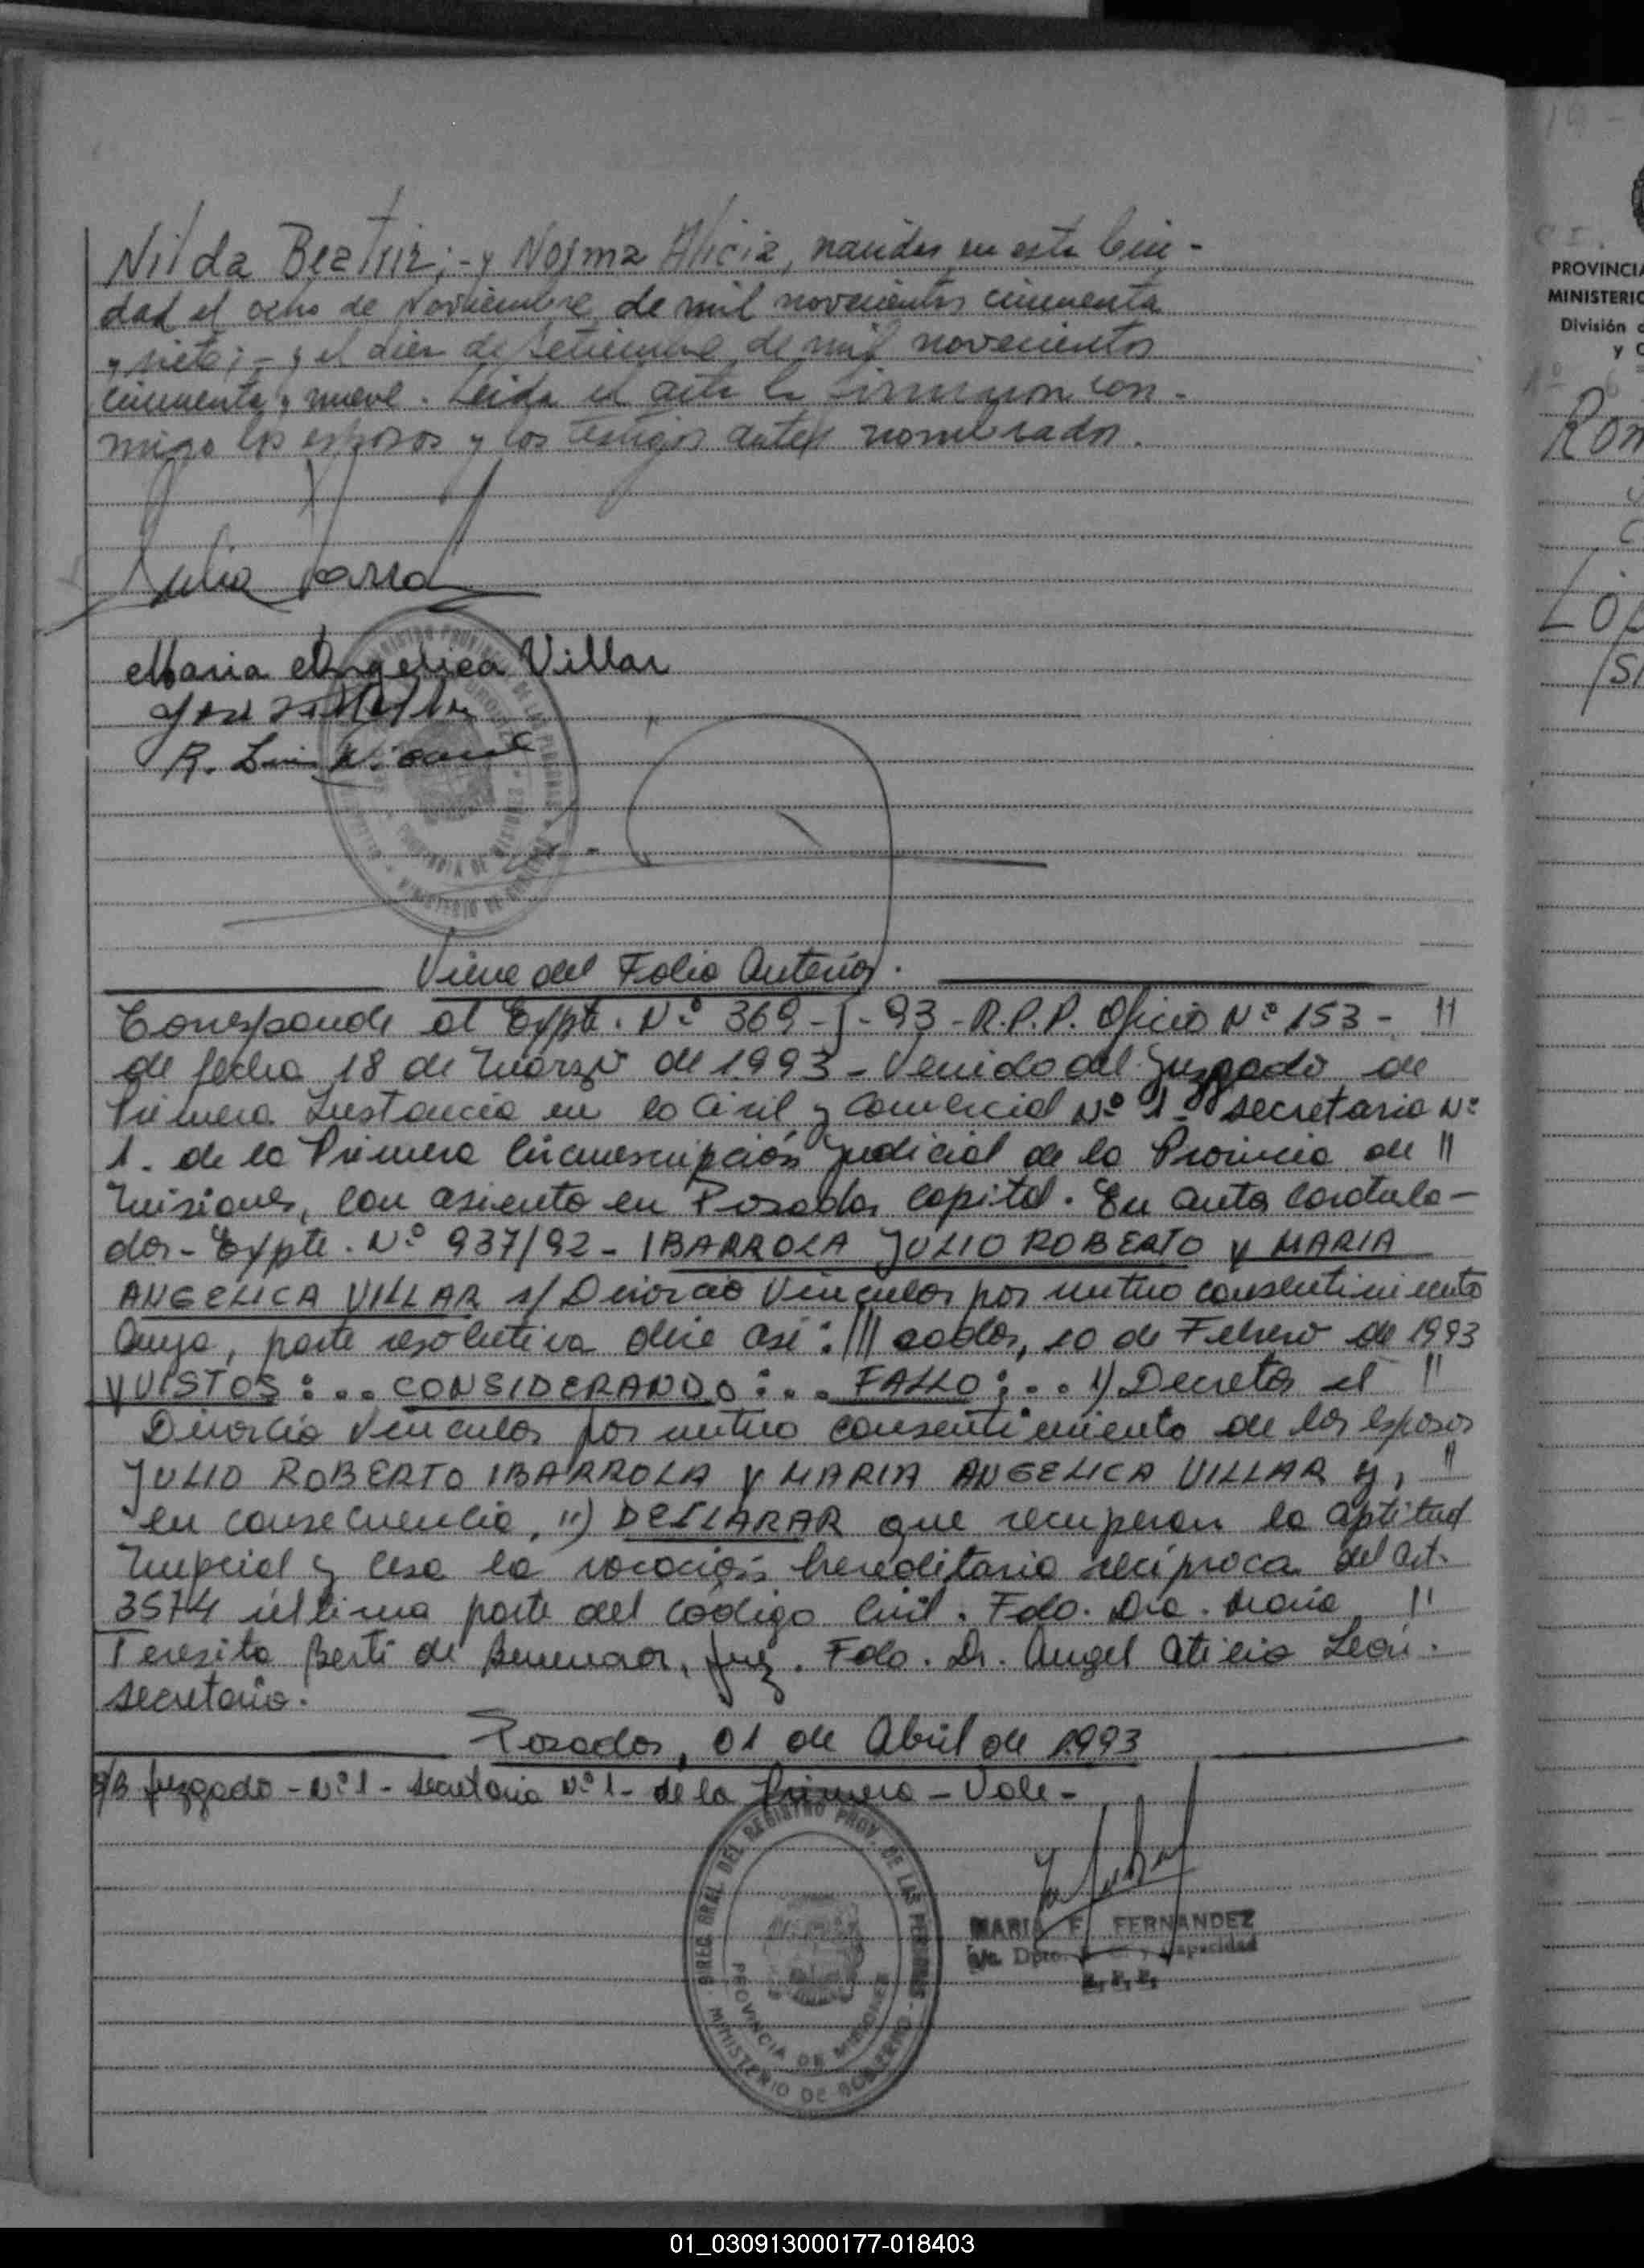 Nilda Beatriz; - y Norma Alicia, nacidas en esta Ciu-
dad el ocho de Noviembre de mil novecientos cincuenta
y siete; - y el diez de Setiembre de mil novecientos
cincuenta y nueve. Leida el acta la firmaron con-
migo los esposos y los testigos antes nombrados.
Maria Angelica Villar
R. Luis
Viene del Folio Anterior.
Corresponde al Expte. Nº 369-J-93-R.P.P. Oficio Nº 153 - "
de fecha 18 de Marzo de 1993 - Venido del Juzgado de
Primera Instancia en lo Civil y Comercial Nº 1 - secretaria Nº
1. de la Primera Circunscripción Judicial de la Provincia de "
Misiones, con asiento en Posadas capital. En autos caratula-
dos - Expte. Nº 937/92 - IBARROLA JULIO ROBERTO y MARIA
ANGELICA VILLAR s/ Divorcio Vincular por mutuo consentimiento
Cuya, parte resolutiva dice asi: /// sadas, 10 de Febrero de 1993
Y VISTOS: .. CONSIDERANDO: .. FALLO: .. 1) Decretar el "
Divorcio Vincular por mutuo consentimiento de los esposos
JULIO ROBERTO IBARROLA y MARIA ANGELICA VILLAR y, "
en consecuencia, ") DECLARAR que recuperan la aptitud
Nupcial y cesa la vocación hereditaria recíproca del art.
3574 última parte del codigo Civil. Fdo. Dra. Maria "
Teresita Berti de Juez. Fdo. Dr. Angel Atilio León.
secretario.
Posadas, 01 de Abril de 1993
S/B Juzgado - Nº 1 - secretaria Nº 1 - de la Primera - Vale -
DIREC. GRAL. DEL REGISTRO PROV. DE LAS PERSONAS
PROVINCIA DE MISIONES
MINISTERIO DE GOBIERNO
MARIA F. FERNANDEZ
a/c. Dpto. y Capacidad
R. P. P.
PROVINCIA
MINISTERIO
División
y
01_030913000177-018403